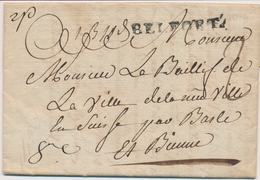 BELFORT
Monsieur
Monsieur Le Baillif de
La Ville de la neu Ville
en Suisse par Basle
Et Bienne